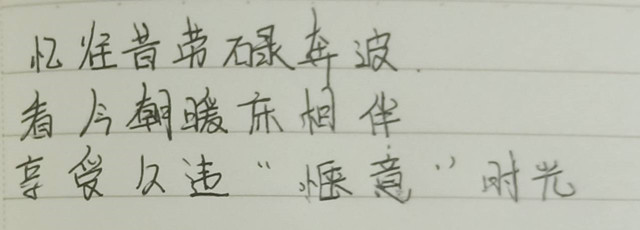 忆往昔劳碌奔波
看今朝暖床相伴
享受久违“惬意”时光